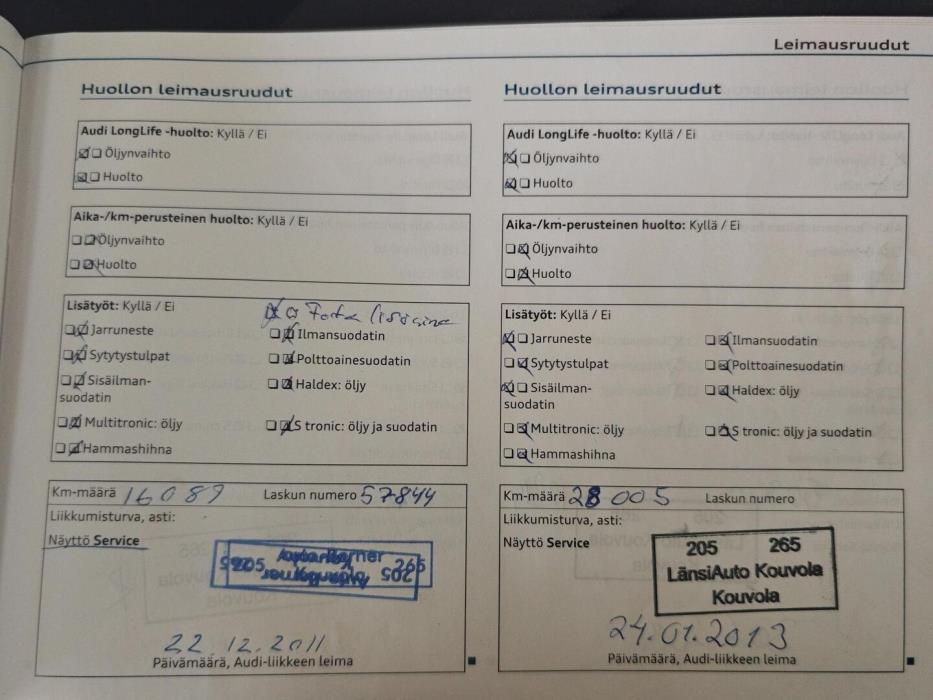 Leimausruudut
Huollon leimausruudut
Audi LongLife -huolto: Kyllä / Ei
Öljynvaihto
Huolto
Aika-/km-perusteinen huolto: Kyllä / Ei
Öljynvaihto
Huolto
Lisätyöt: Kyllä / Ei
Jarruneste
Ilmansuodatin
Sytytystulpat
Polttoainesuodatin
Sisäilman-
suodatin
Haldex: öljy
Multitronic: öljy
S tronic: öljy ja suodatin
Hammashihna
Km-määrä 16089 Laskun numero 57844
Liikkumisturva, asti:
Näyttö Service
205 265
22.12.2011
Päivämäärä, Audi-liikkeen leima
Huollon leimausruudut
Audi LongLife -huolto: Kyllä / Ei
Öljynvaihto
Huolto
Aika-/km-perusteinen huolto: Kyllä / Ei
Öljynvaihto
Huolto
Lisätyöt: Kyllä / Ei
Jarruneste
Ilmansuodatin
Sytytystulpat
Polttoainesuodatin
Sisäilman-
suodatin
Haldex: öljy
Multitronic: öljy
S tronic: öljy ja suodatin
Hammashihna
Km-määrä 28005 Laskun numero
Liikkumisturva, asti:
Näyttö Service
205 265
LänsiAuto Kouvola
Kouvola
24.01.2013
Päivämäärä, Audi-liikkeen leima